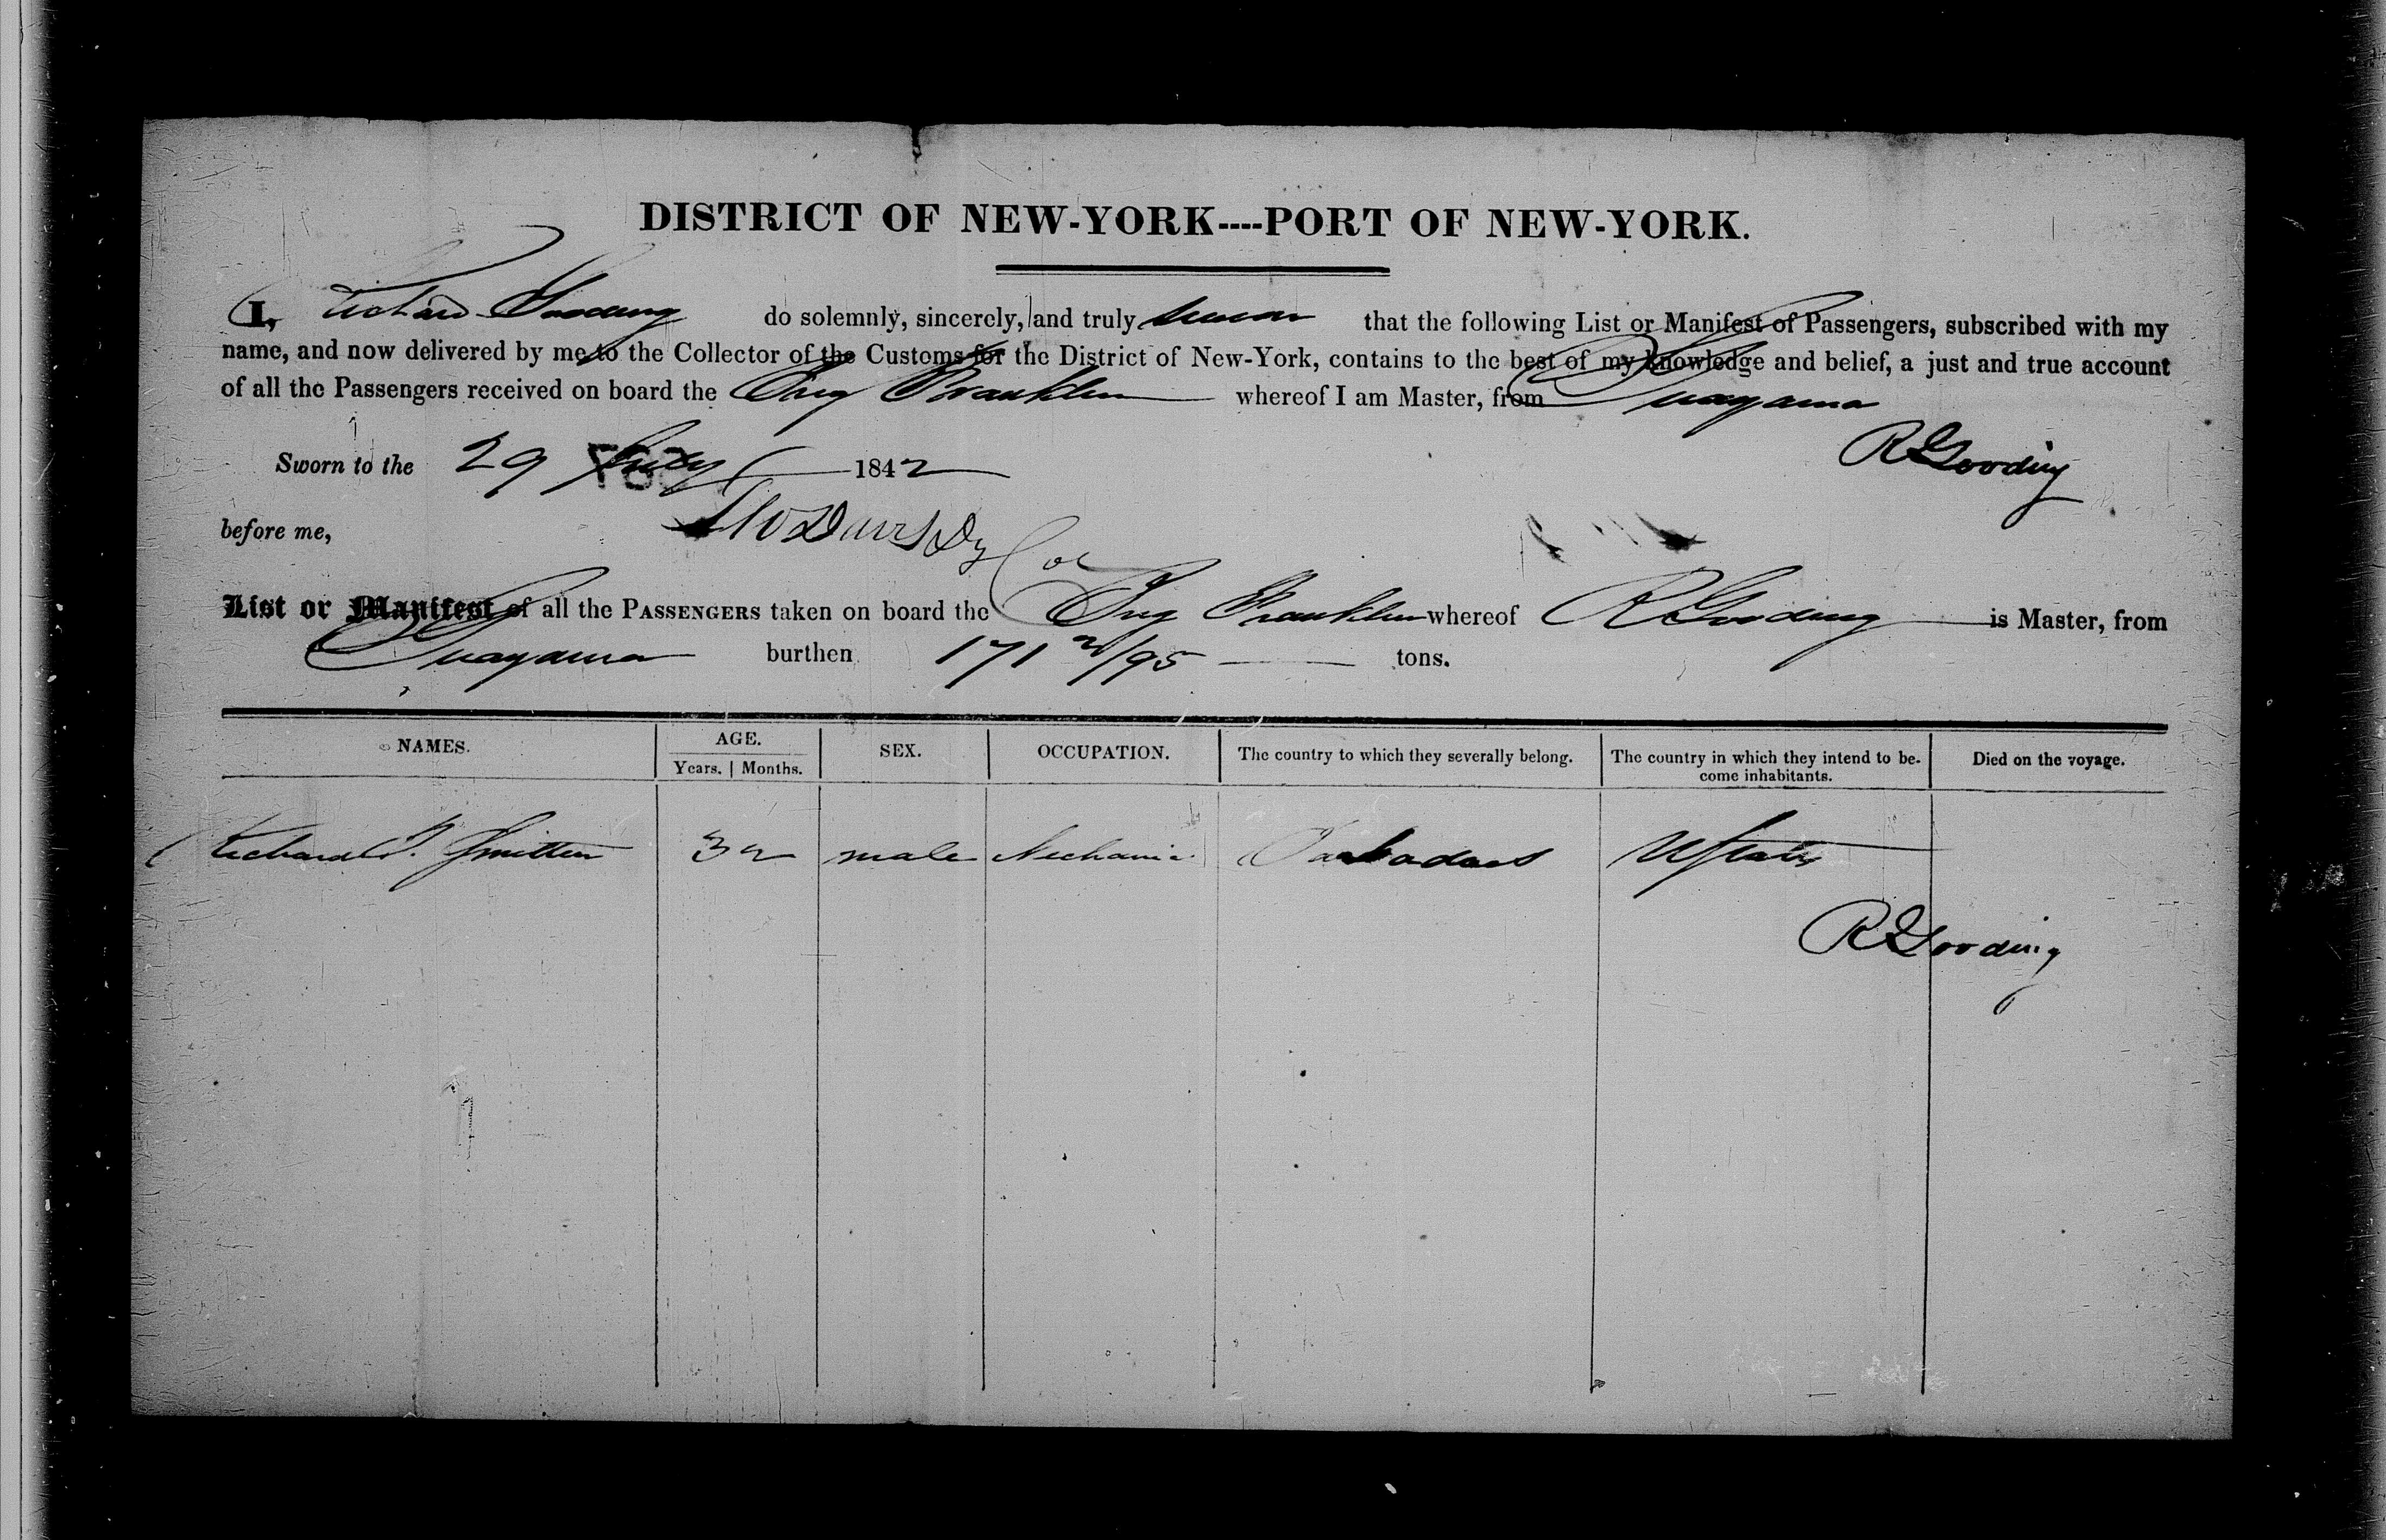 DISTRICT OF NEW-YORK----PORT OF NEW-YORK.
I, Richard Gooding do solemnly, sincerely, and truly swear that the following List or Manifest of Passengers, subscribed with my
name, and now delivered by me to the Collector of the Customs for the District of New-York, contains to the best of my knowledge and belief, a just and true account
of all the Passengers received on board the Brig Franklin whereof I am Master, from Guayama
Sworn to the 29 July 1842 R Gooding
before me, Dy Col
List or Manifest of all the PASSENGERS taken on board the Brig Franklin whereof R Gooding is Master, from
Guayama burthen 171 /95 tons.
NAMES. AGE. Years. | Months. SEX. OCCUPATION. The country to which they severally belong. The country in which they intend to be-come inhabitants. Died on the voyage.
Richard 32 male Mechanic Barbadoes U States
R Gooding